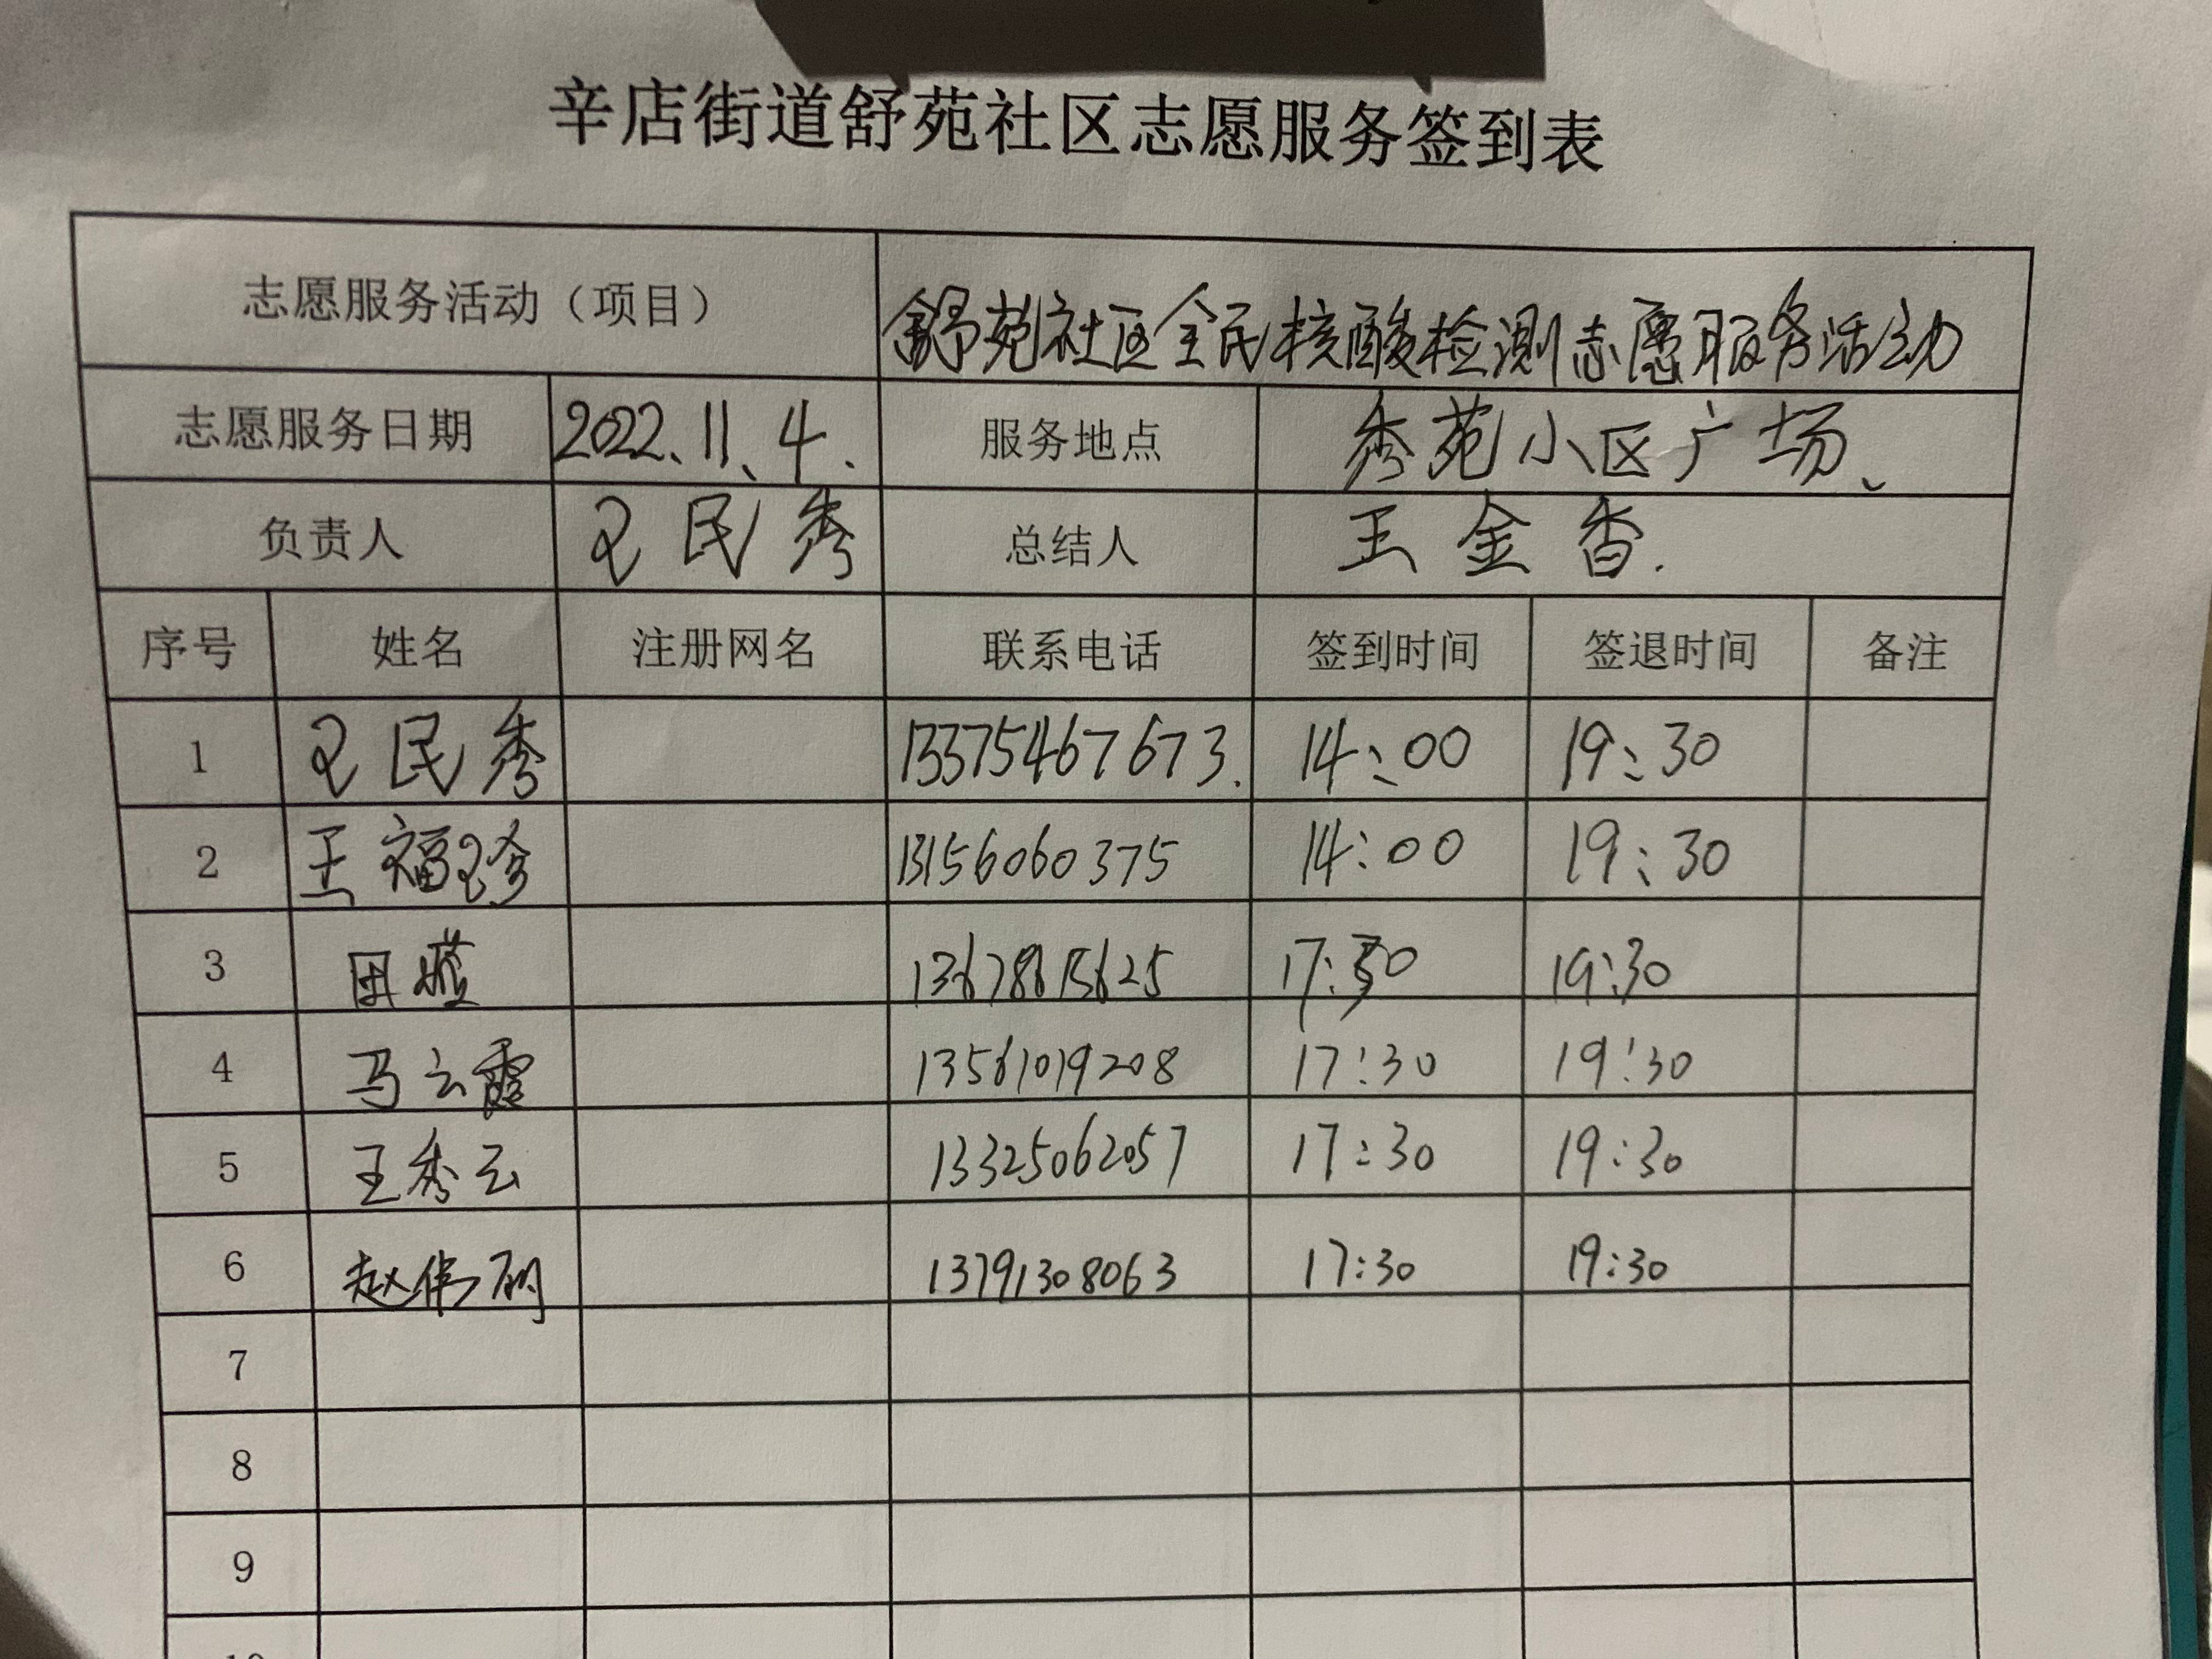 辛店街道舒苑社区志愿服务签到表
志愿服务活动（项目） 舒苑社区全民核酸检测志愿服务活动
志愿服务日期 2022、11、4. 服务地点 秀苑小区广场、
负责人 王民秀 总结人 王金香.
序号 姓名 注册网名 联系电话 签到时间 签退时间 备注
1 王民秀 13375467673. 14:00 19:30
2 王福珍 13156060375 14:00 19:30
3 19:30
4 马云霞 13561019208 17:30 19:30
5 王秀云 13325062057 17:30 19:30
6 赵伟 13791308063 17:30 19:30
7
8
9
10